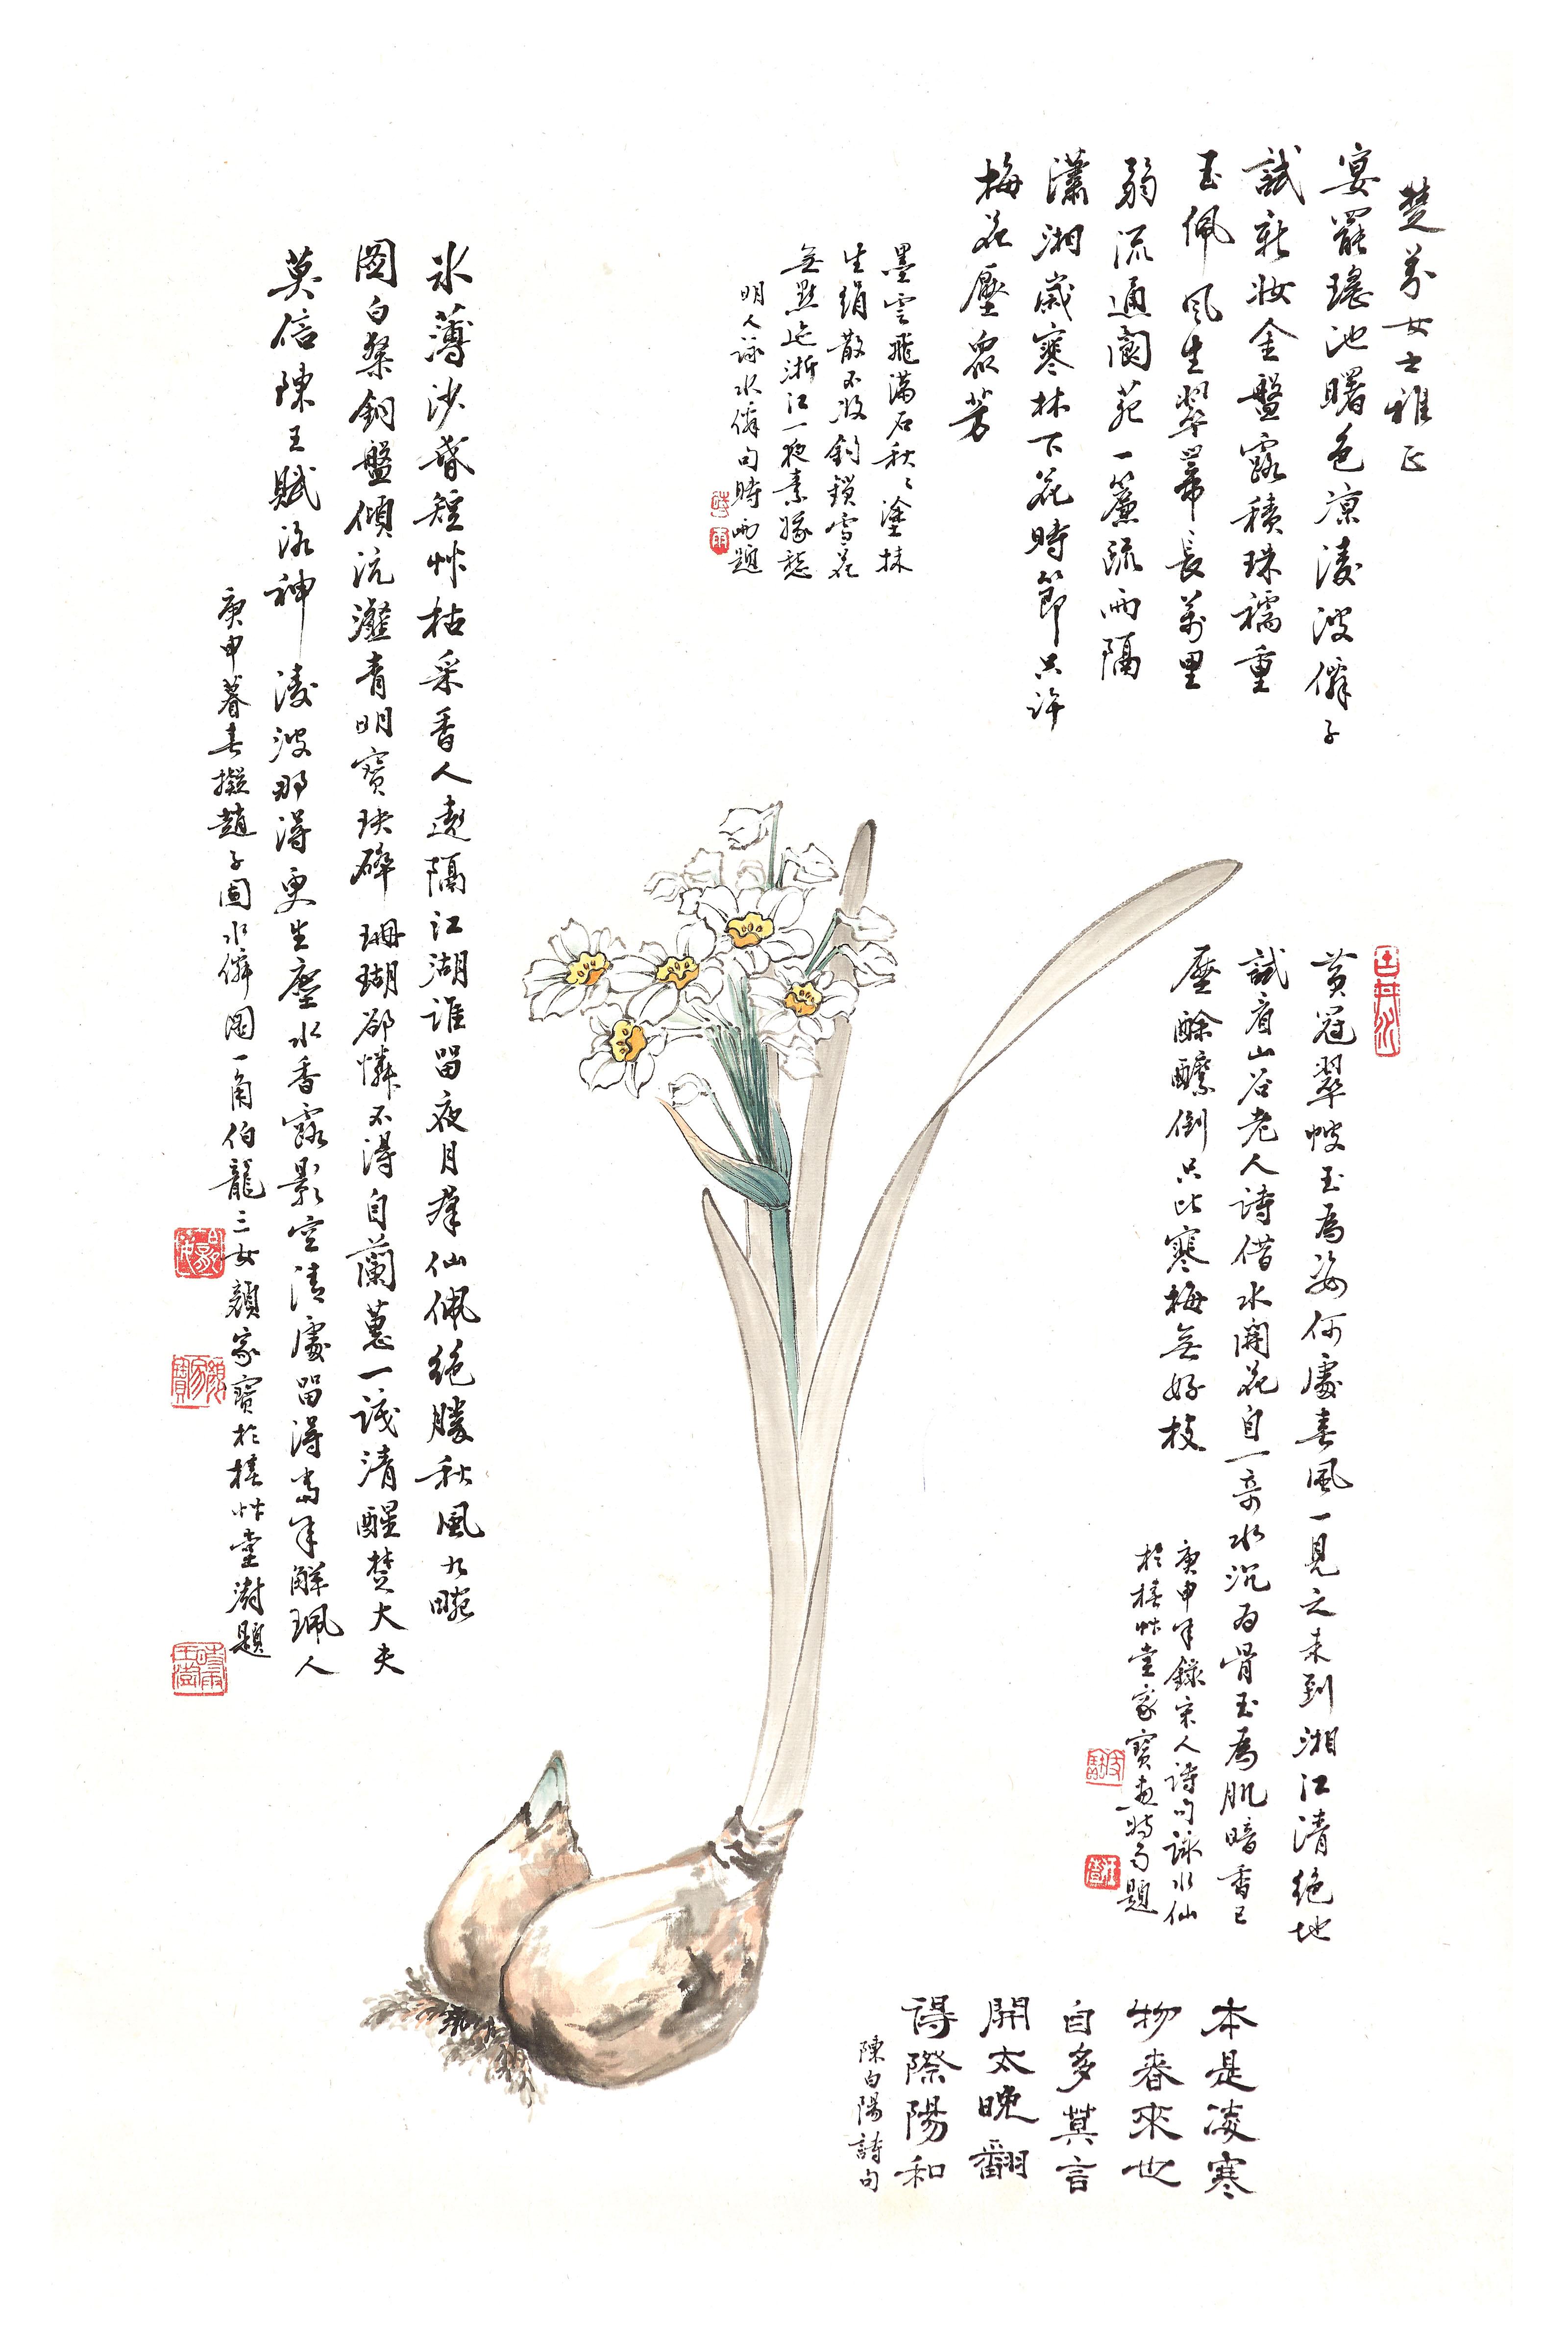 楚芬女士雅正
宴罷瑤池曙色凉凌波僊子
試新妝金盤露積珠襦重
玉佩風生翠帶長萬里
弱流通閬苑一簾疏雨隔
瀟湘歲寒林下花時節只許
梅花壓眾芳
墨雲飛滿石秋〻塗抹
生綃散不收鈎鎖雪花
無點迹浙江一夜素嫦愁
明人詠水僊句時雨題
時雨
冰薄沙昏短艸枯采香人遠隔江湖誰留夜月羣仙佩絕勝秋風九畹
圖白粲銅盤傾沆瀣青明寶玦碎珊瑚卻憐不得自蘭蕙一識清醒楚大夫
莫信陳王賦洛神凌波那得更生塵水香露影空清處留得當年解珮人
庚申暮春擬趙子固水僊圖一角伯龍三女顏家寶於椿艸堂澍題
顏家寶
黃冠翠帔玉為姿何處春風一見之未到湘江清絕地
試看山谷老人詩借水開花自一奇水沉為骨玉為肌暗香已
壓酴醿倒只比寒梅無好枝
庚申年錄宋人詩句詠水仙
於椿艸堂家寶畫時雨題
本是凌寒
物春來也
自多莫言
開太晚翻
得際陽和
陳白陽詩句